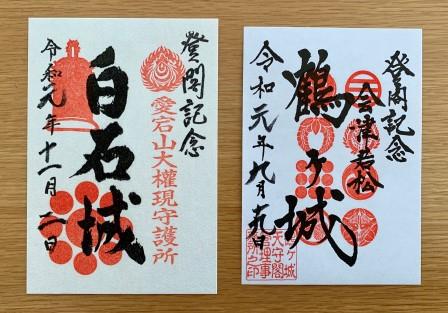 登閣記念
愛宕山大権現守護所
白石城
令和元年十一月二日
登閣記念
会津若松
鶴ヶ城
令和元年九月
鶴ヶ城
天守閣